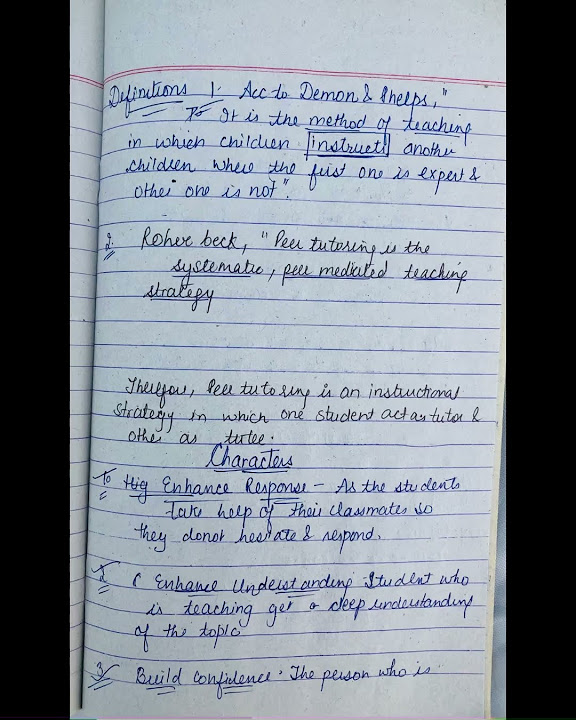 Definitions 1. Acc to Demon & Phelps, "
It is the method of teaching
in which children instructs another
children where the first one is expert &
other one is not".
2. Roher beck, "Peer tutoring is the
systematic, peer mediated teaching
strategy
Therefore, Peer tutoring is an instructional
strategy in which one student act as tutor &
other as tutee.
Characters
1. Hig Enhance Response - As the students
take help of their classmates so
they donot hesitate & respond.
2. Enhance Understanding Student who
is teaching get a deep understanding
of the topic
3. Build Confidence. The person who is